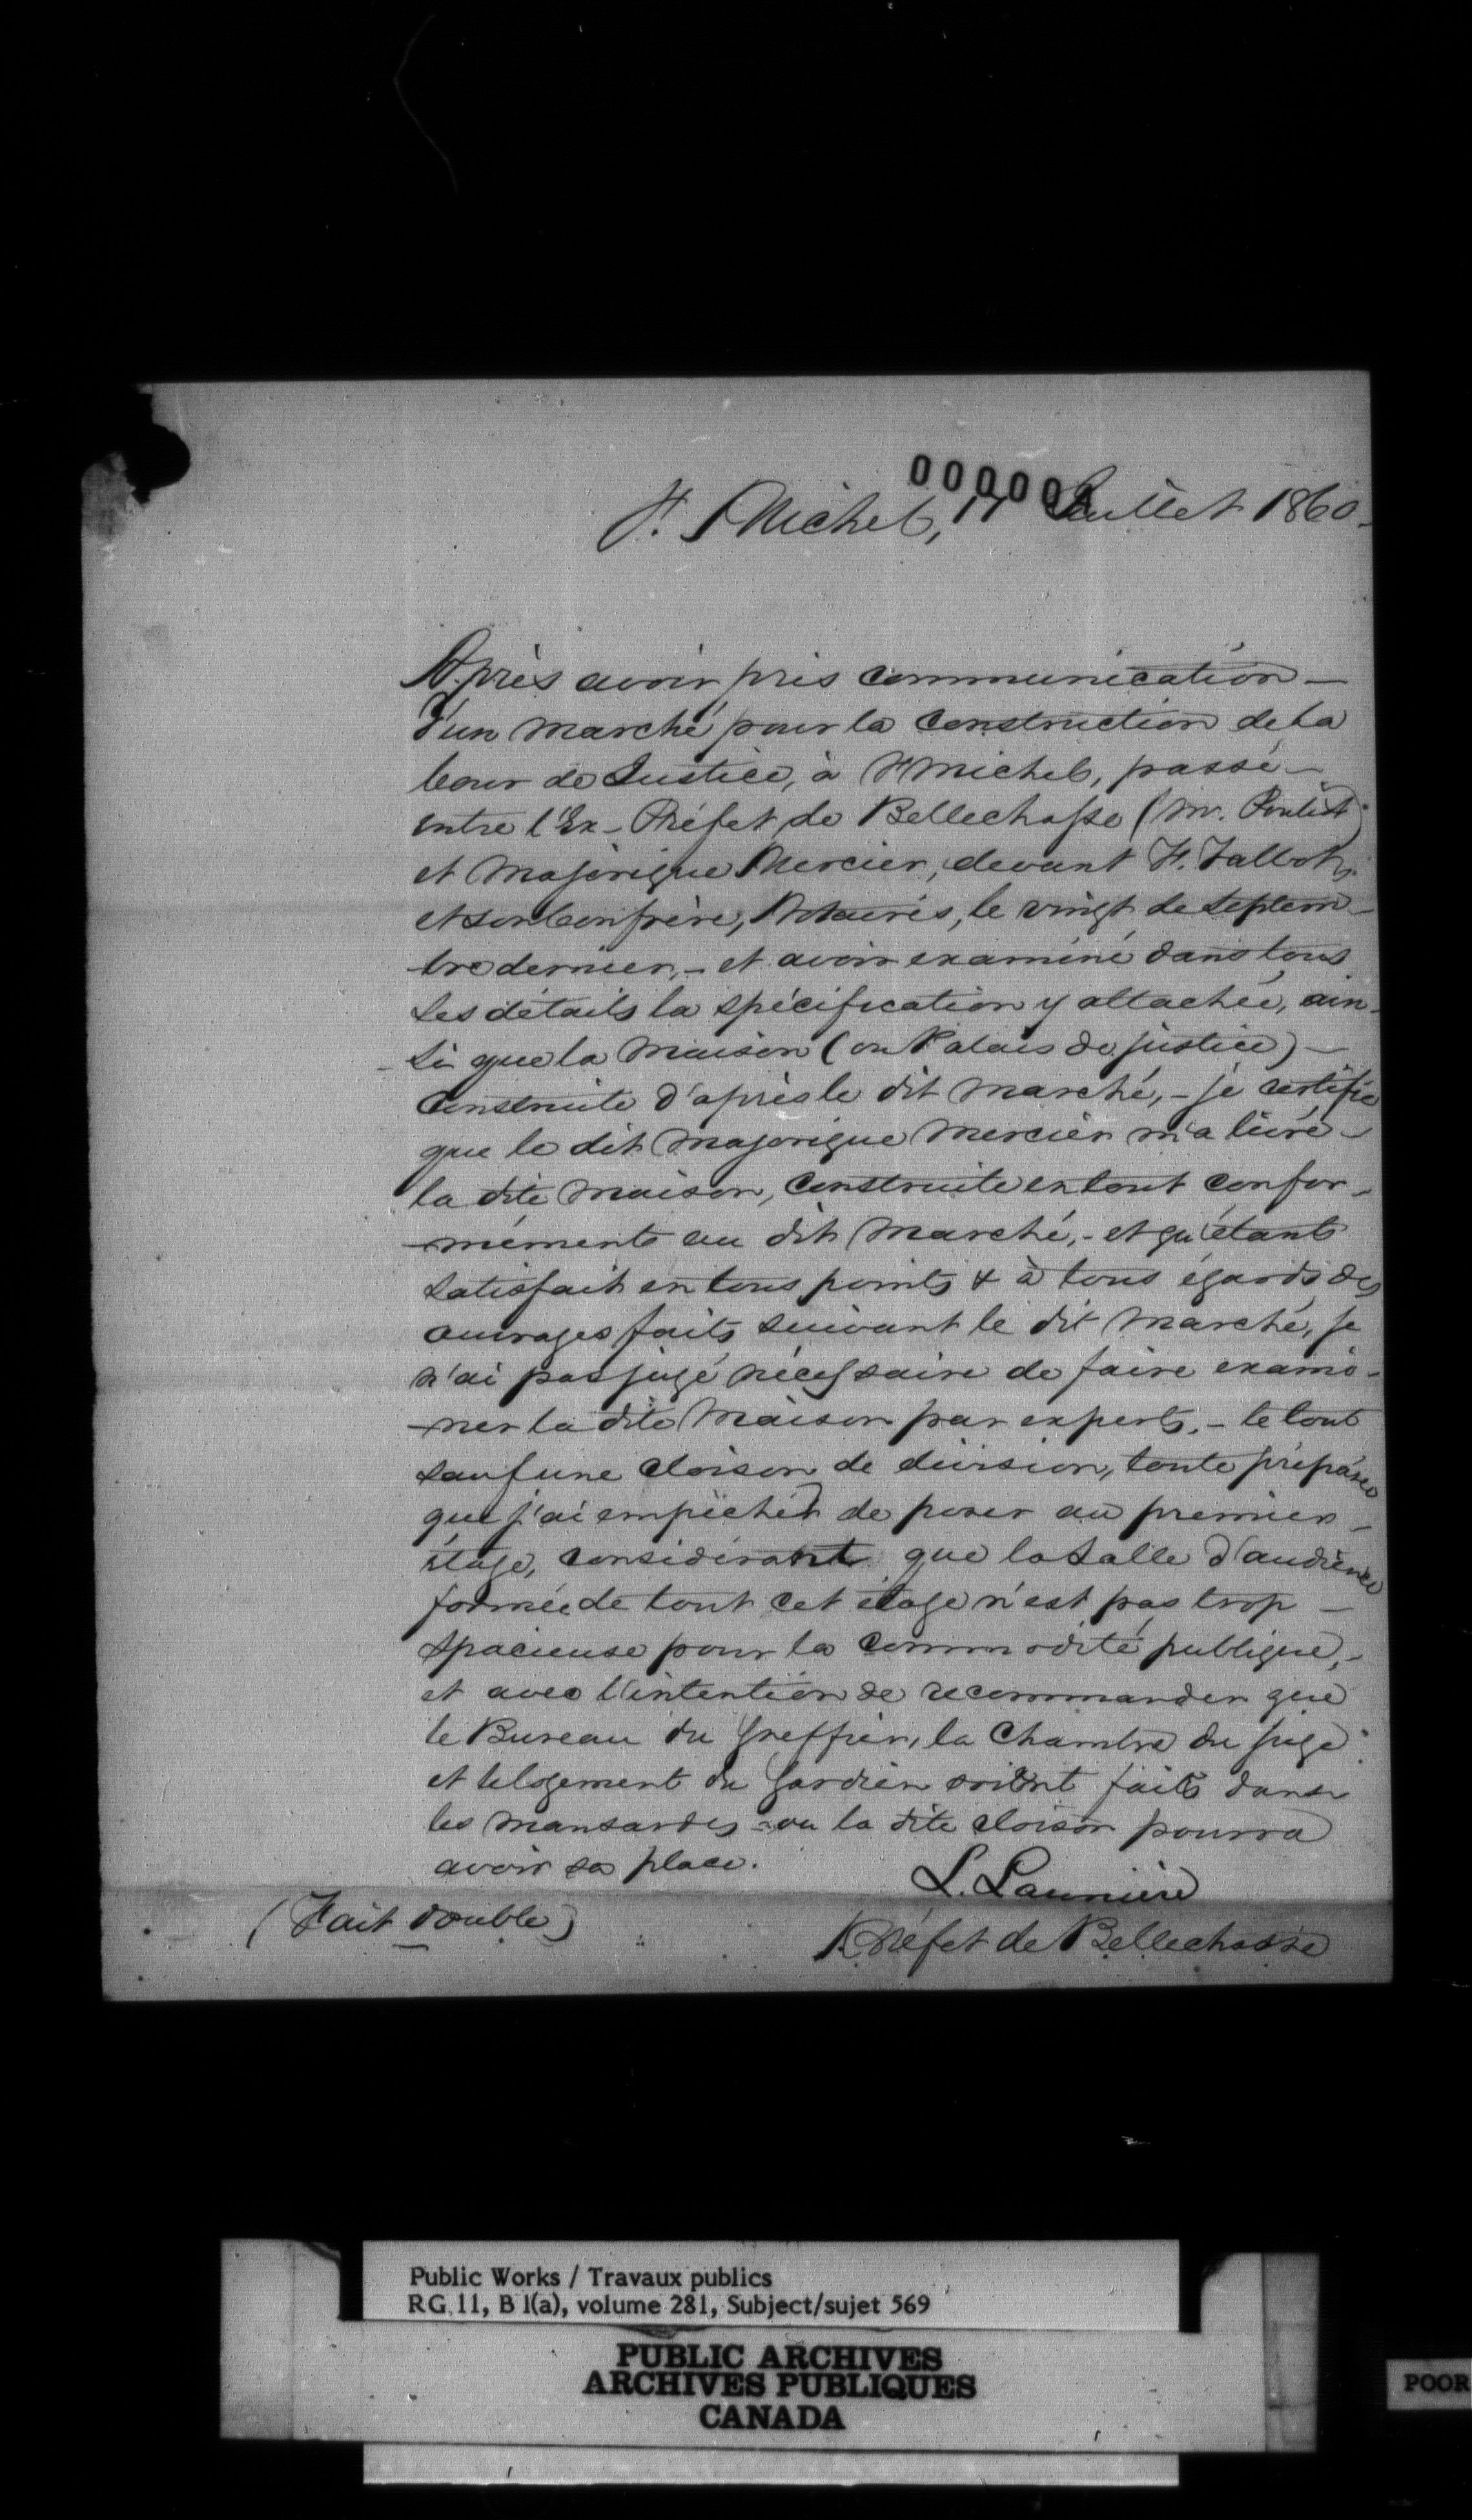 St. Michel, 17 Juillet 1860 -
Après avoir pris communication -
d'un marché pour la construction de la
Cour de Justice, à St Michel, passé -
entre l'Ex-Préfet de Bellechasse (Mr. Pouliot)
et Majorique Mercier, devant F. Talbot,
et son Confrère, Notaires, le vingt de Septem-
bre dernier, - et avoir examiné dans tous
ses détails la spécification y attachée, ain-
-si que la maison (ou Palais de justice) -
Construite d'après le dit marché, - je certifie
que le dit Majorique Mercier m'a livré -
la dite maison, construite en tout confor-
-mément au dit marché, - et qu'étant
satisfait en tous points & à tous égards des
ouvrages faits suivant le dit marché, je
n'ai pas jugé nécessaire de faire exami-
-ner la dite maison par experts, - le tout
sauf une cloison de division, toute préparée
que j'ai empêché de poser au premier -
étage, considérant que la salle d'audience
formée de tout cet étage n'est pas trop -
spacieuse pour la commodité publique, -
et avec l'intention de recommander que
le Bureau du Greffier, la Chambre du Juge
et le logement du Gardien soient faits dans
les mansardes - ou la dite cloison pourra
avoir sa place.
L. Launière
Préfet de Bellechasse
(Fait double)
Public Works / Travaux publics
RG 11, B 1(a), volume 281, Subject/sujet 569
PUBLIC ARCHIVES
ARCHIVES PUBLIQUES
CANADA
POOR